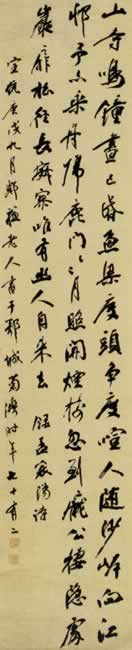 山寺鳴鐘晝已昏魚梁度頭爭度喧人隨沙岸向江
邨予亦乘舟歸鹿門々々月照開煙樹忽到龐公棲隱處
巖扉松徑長寂寥唯有幽人自來去 錄孟襄陽詩
宣統庚戌九月老人書于城時年七十有二